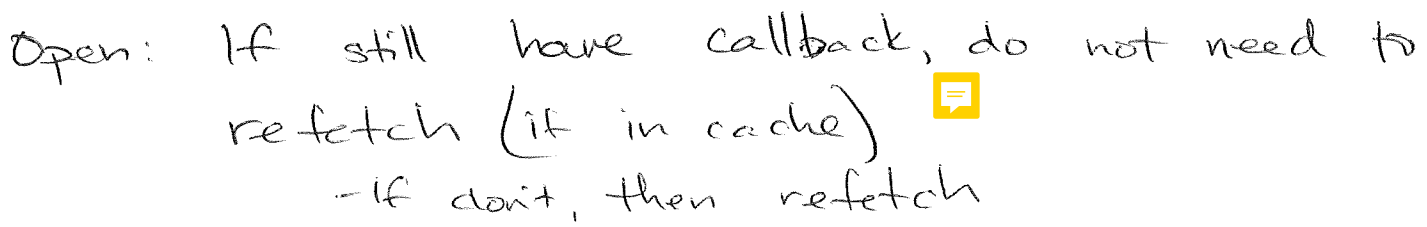 Open: If still have callback, do not need to
refetch (if in cache)
-If don't, then refetch